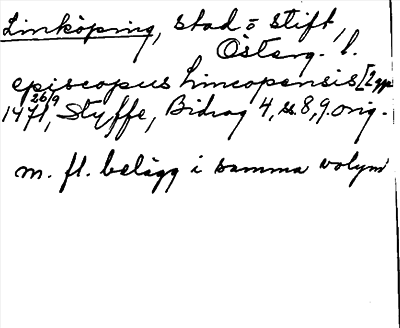 Linköping, stad o stift,
Österg. l.
episcopus Lincopensis [2 ggr
26/9
1471, Styffe, Bidrag 4, s. 8, 9. orig.
m. fl. belägg i samma volym